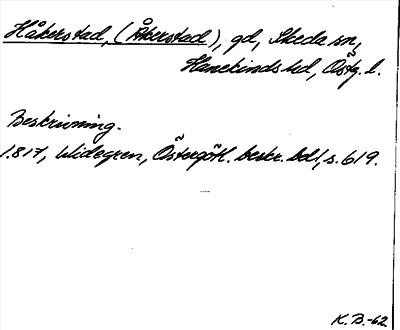 Håkerstad, (Åkerstad), gd, Skeda sn,
Hanekinds hd, Östg. l.
Beskrivning.
1.817, Widegren, Östergötl. beskr. bd 1, s. 619.
K. B. -62.